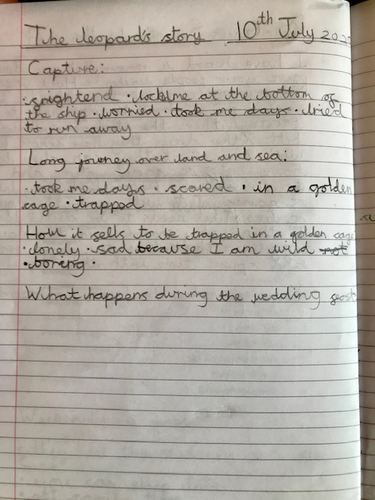 The leopard's story 10th July 202
Capture:
· frightend · lock me at the bottom of
the ship · worried · took me days · tried
to run away
Long journey over land and sea:
· took me days · scared · in a golden
cage · trapped
How it fells to be trapped in a golden cage
· lonely · sad because I am wild not
· boring ·
What happens during the wedding